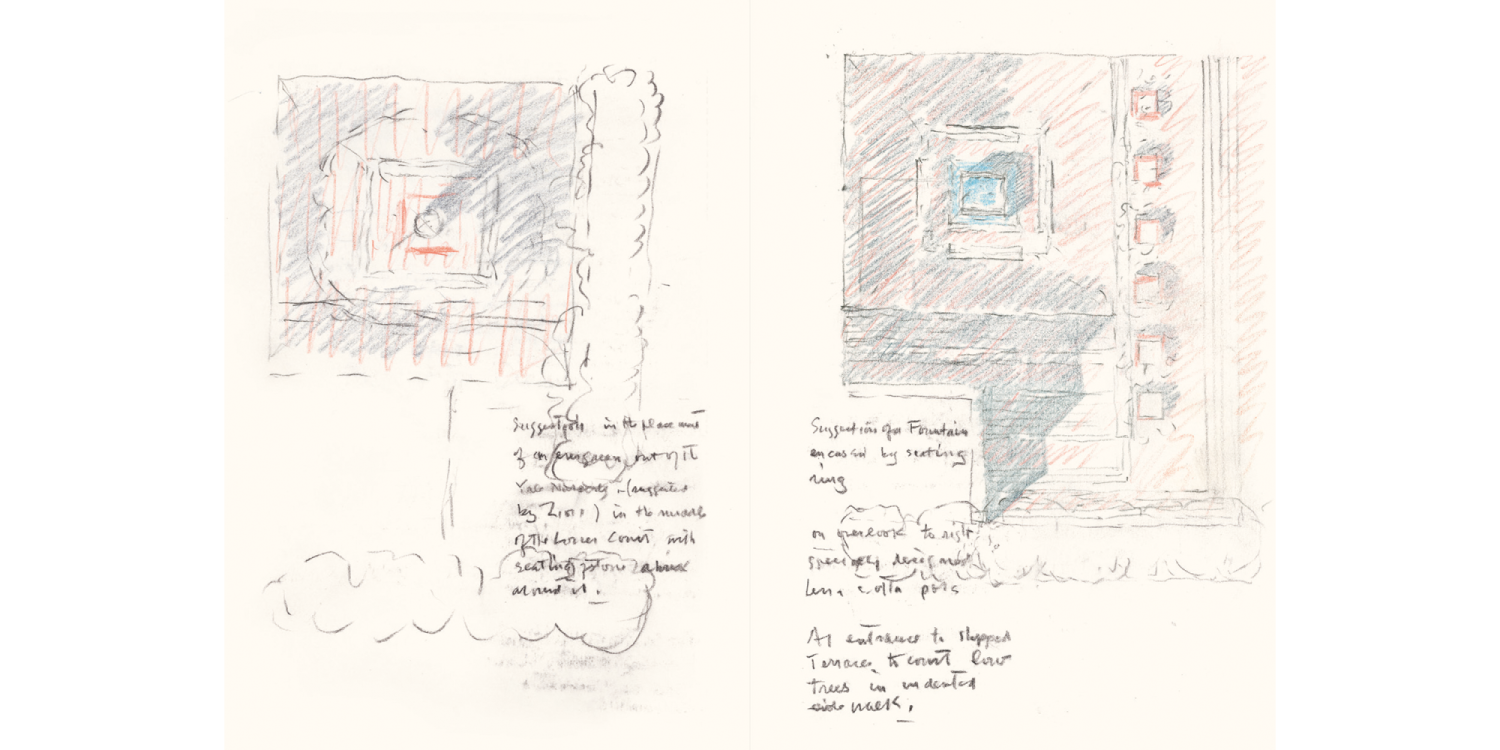 Suggestion in the placement
of an evergreen out of the
Yale Nursery, (suggested
by Zion) in the middle
of the Lower Court with
seating stone
around it.
Suggestion of a Fountain
encased by seating
ring
on overlook to right
specially designed
terra cotta pots
At entrance to stepped
Terraces to court low
trees in indented
side walk.